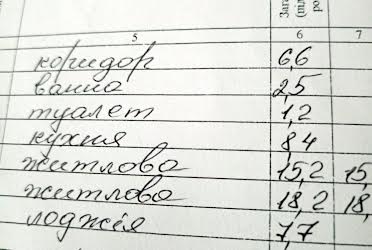 Зага
(під
ро
5 6 7
коридор 6,6
ванна 2,5
туалет 1,2
кухня 8,4
житлова 15,2 15,
житлова 18,2 18,
лоджія 7,7